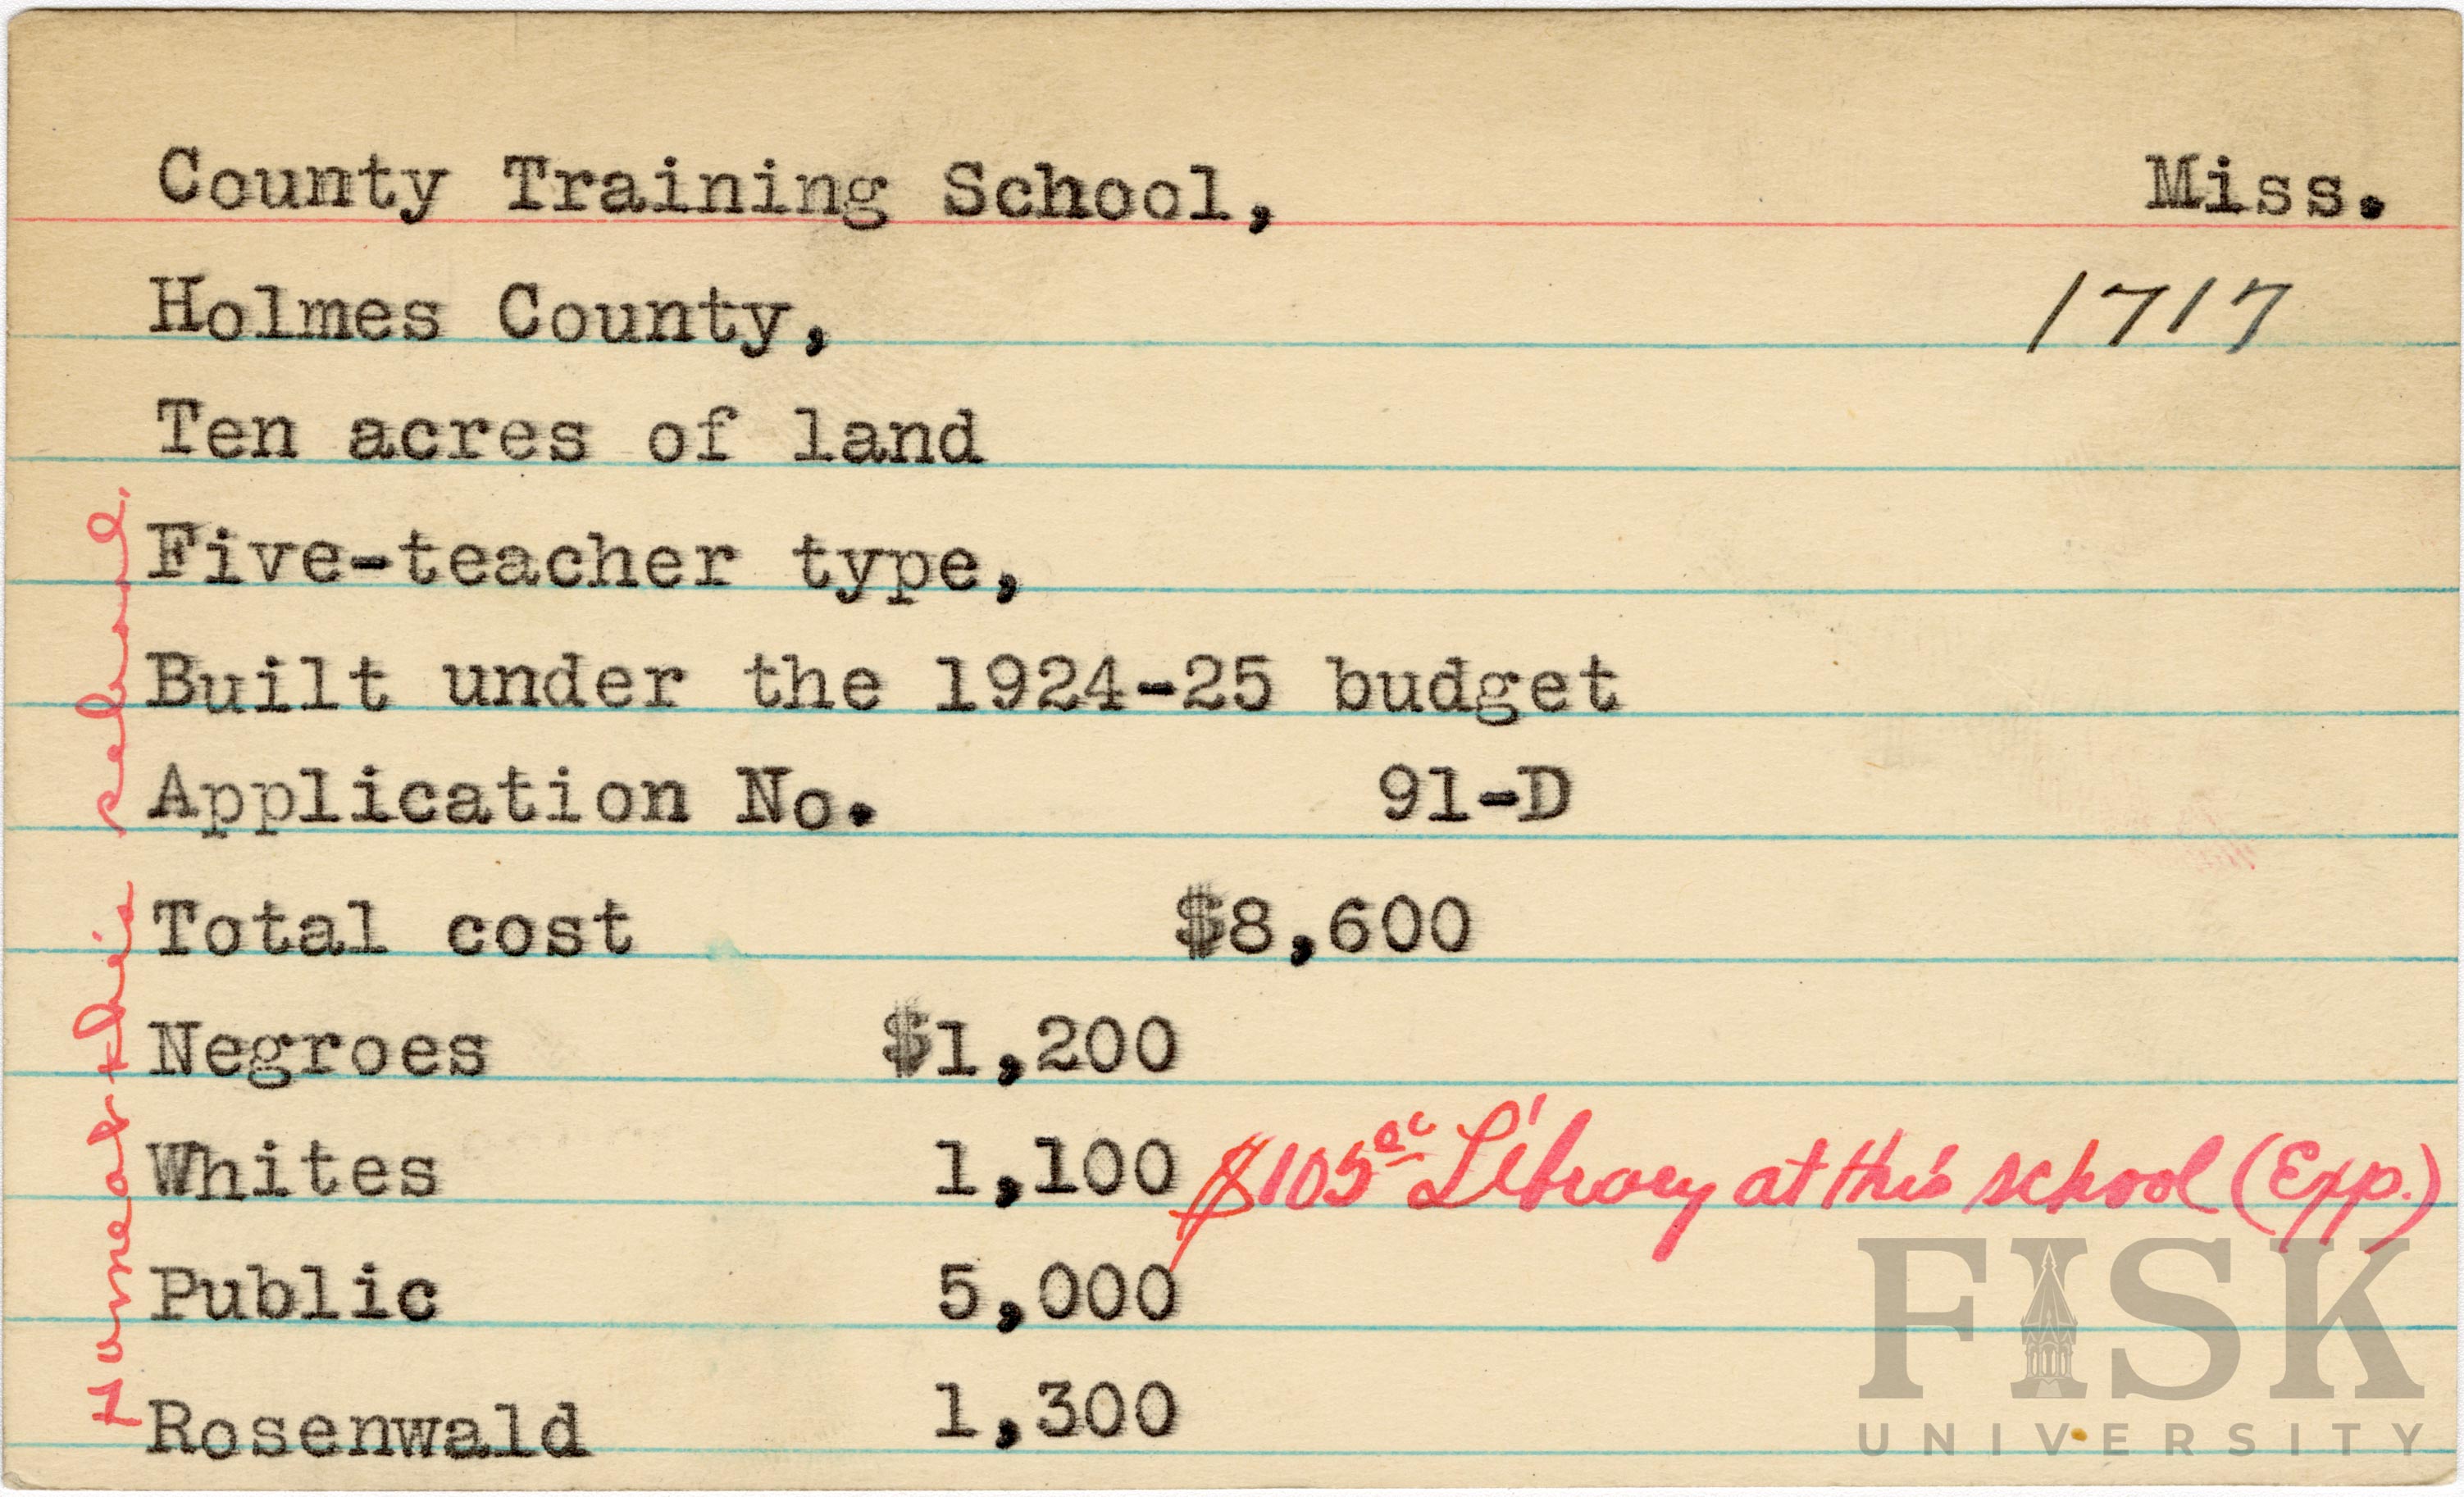 County Training School, Miss.
Holmes County, 1717
Ten acres of land
Five-teacher type,
Built under the 1924-25 budget
Application No. 91-D
Total cost $8,600
Negroes $1,200
Whites 1,100 $105 Library at this school (Exp.)
Public 5,000
Rosenwald 1,300
Home at this school.
FISK
UNIVERSITY